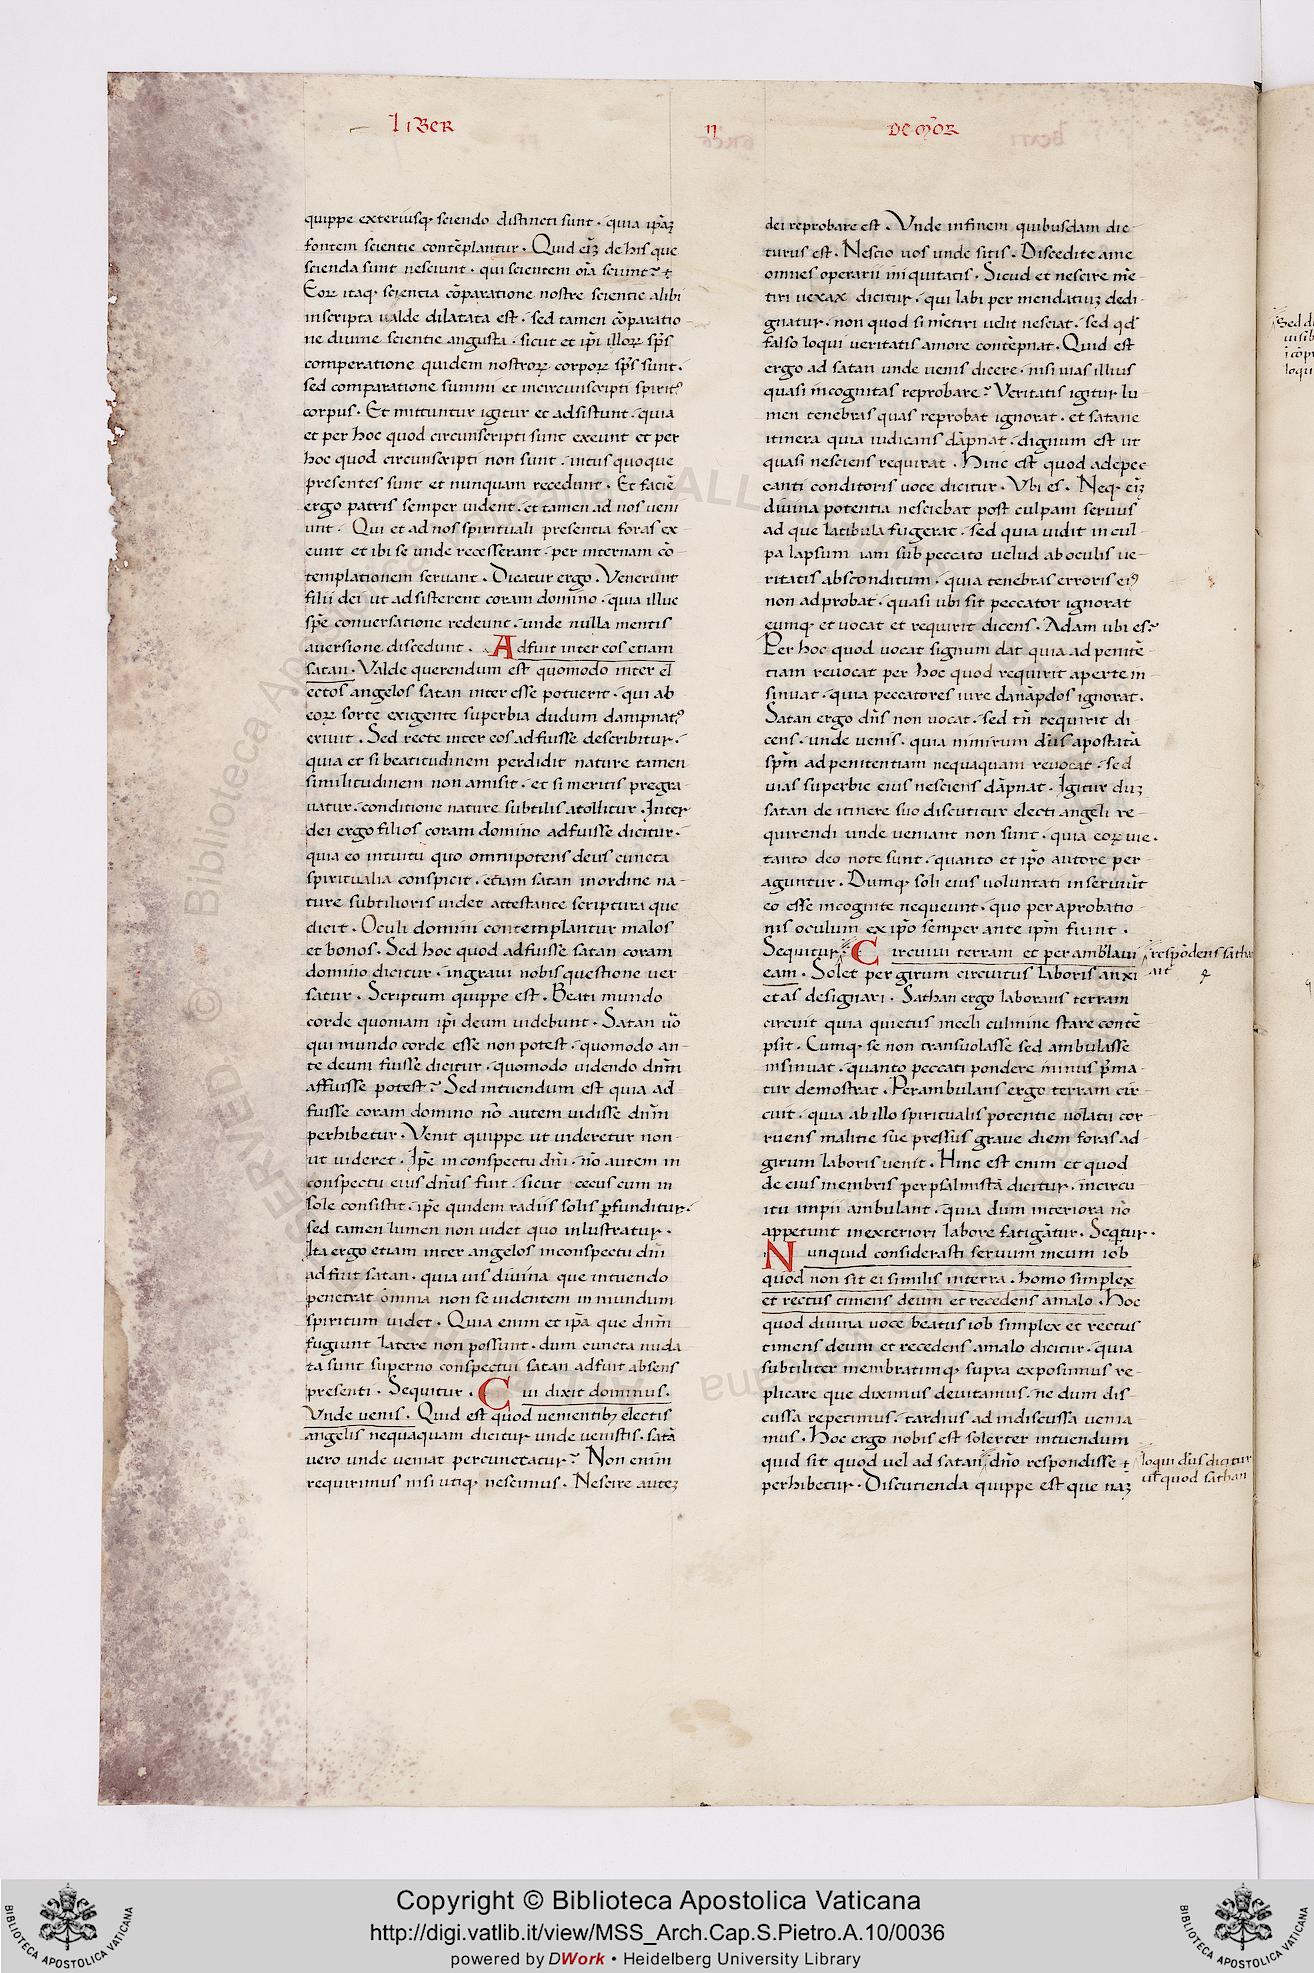 LIBER II DE MOR̄
quippe exteriusq; sciendo distincti sunt · quia ip̄aꝫ
fontem scientie contēplantur · Quid eīꝫ de his que
scienda sunt nesciunt · qui scientem oīa sciunt?
Eoꝝ itaq; scientia cōparatione nostre scientie alibi
inscripta ualde dilatata est · sed tamen cōparatio-
ne diuine scientie angusta · sicut et ip̄i illoꝝ sp̄s
comperatione quidem nostroꝝ corpoꝝ sp̄s sunt ·
sed comparatione summi et incircunscripti spiritꝰ
corpus · Et mittuntur igitur et adsistunt · quia
et per hoc quod circunscripti sunt exeunt et per
hoc quod circunscripti non sunt · intus quoque
presentes sunt et nunquam recedunt · Et faciē
ergo patris semper uident · et tamen ad nos ueni
unt · Qui et ad nos spirituali presentia foras ex
eunt et ibi se unde recesserant · per internam cō-
templationem seruant · Dicatur ergo · Venerunt
filii dei ut adsisterent coram domino · quia illuc
sp̄e conuersatione redeunt · unde nulla mentis
auersione discedunt · Adfuit inter eos etiam
satan · Valde querendum est quomodo inter el
ectos angelos satan inter esse potuerit · qui ab
eoꝝ sorte exigente superbia dudum dampnatꝰ
exiuit · Sed recte inter eos adfuisse describitur ·
quia et si beatitudinem perdidit nature tamen
similitudinem non amisit · et si meritis pregra-
uatur · conditione nature subtilis atollitur · Inter
dei ergo filios coram domino adfuisse dicitur ·
quia eo intuitu quo omnipotens deus cuncta
spiritualia conspicit · etiam satan inordine na-
ture subtilioris uidet attestante scriptura que
dicit · Oculi domini contemplantur malos
et bonos · Sed hoc quod adfuisse satan coram
domino dicitur · ingraui nobis questione uer
satur · Scriptum quippe est · Beati mundo
corde quoniam ip̄i deum uidebunt · Satan uō
qui mundo corde esse non potest · quomodo an-
te deum fuisse dicitur · quomodo uidendo dn̄m
affuisse potest? Sed intuendum est quia ad
fuisse coram domino nō autem uidisse dn̄m
perhibetur · Venit quippe ut uideretur non-
ut uideret · Ip̄e inconspectu dn̄i · nō autem in
conspectu eius dn̄us fuit · sicut cecus cum in
sole consistit · ip̄e quidem radiis solis ꝑfunditur ·
sed tamen lumen non uidet quo inlustratur ·
Ita ergo etiam inter angelos inconspectu dn̄i
adfuit satan · quia uis diuina que intuendo
penetrat omnia non se uidentem in mundum
spiritum uidet · Quia enim et ip̄a que dn̄m
fugiunt latere non possunt · dum cuncta nuda
ta sunt superno conspectui satan adfuit absens
presenti · Sequitur · Cui dixit dominus ·
Vnde uenis · Quid est quod uenientibꝫ electis
angelis nequaquam dicitur unde uenistis · satā
uero unde ueniat percunctatur? Non enim
requirimus nisi utiq; nescimus · Nescire auteꝫ
dei reprobare est · Vnde infinem quibusdam dic-
turus est · Nescio uos unde sitis · Discedite ame
omnes operarii iniquitatis · Sicud et nescire mē-
tiri uexax dicitur · qui labi per mendatiuꝫ dedi-
gnatur · non quod si mētiri uelit nesciat · sed qd̄
falso loqui ueritatis amore contēpnat · Quid est
ergo ad satan unde uenis dicere · nisi uias illius
quasi incognitas reprobare? Veritatis igitur lu
men tenebras quas reprobat ignorat · et satane
itinera quia iudicans dāpnat · dignum est ut
quasi nesciens requirat · Hinc est quod adepec
canti conditoris uoce dicitur · Vbi es · Neq; eīꝫ
diuina potentia nesciebat post culpam seruus
ad que latibula fugerat · sed quia uidit in cul-
pa lapsum iam sub peccato uelud ab oculis ue-
ritatis absconditum · quia tenebras erroris eiꝰ
non adprobat · quasi ubi sit peccator ignorat
eumq; et uocat et requirit dicens · Adam ubi es?
Per hoc quod uocat signum dat quia ad penitē-
tiam reuocat per hoc quod requirit aperte in-
sinuat · quia peccatores iure danāpdos ignorat ·
Satan ergo dn̄s non uocat · sed tn̄ requirit di-
cens · unde uenis · quia nimirum dn̄s apostatā
sp̄m ad penitentiam nequaquam reuocat · sed
uias superbie eius nesciens dāpnat · Igitur duꝫ
satan de itinere suo discutitur electi angeli re-
quirendi unde ueniant non sunt · quia eoꝝ uie ·
tanto deo note sunt · quanto et ip̄o autore per-
aguntur · Dumq; soli eius uoluntati inseruiūt
eo esse incognite nequeunt · quo per aprobatio-
nis oculum ex ip̄o semper ante ip̄m fiunt ·
Sequitur · Circuiui terram et perambłaui
eam · Solet per girum circuitus laboris anxi-
etas designari · Sathan ergo laborans terram
circuit quia quietus inceli culmine stare contē-
psit · Cumq; se non transuolasse sed ambulasse
insinuat · quanto peccati pondere inimus p̄ma-
tur demostrat · Perambulans ergo terram cir-
cuit · quia ab illo spiritualis potentie uolatu cor-
ruens malitie sue pressus graue diem foras ad-
girum laboris uenit · Hinc est enim et quod
de eius membris per psalmistā dicitur · incircu-
itu impii ambulant · quia dum interiora nō
appetunt inexteriori labore fatigātur · Seqͥtur ·
Nunquid considerasti seruum meum iob
quod non sit ei similis interra · homo simplex
et rectus timens deum et recedens amalo · Hoc
quod diuina uoce beatus iob simplex et rectus
timens deum et recedens amalo dicitur · quia
subtiliter membratimq; supra exposuimus re-
plicare que diximus deuitamus · ne dum dis-
cussa repetimus · tardius ad indiscussa uenia-
mus · Hoc ergo nobis est solerter intuendum
quid sit quod uel ad satan dn̄o respondisse
perhibetur · Discutienda quippe est que naꝫ
respōdens sathan
ait
loqui dn̄s dicitur
ul̄ quod sathan
Sed d
uisib
icōp
loqu
Copyright © Biblioteca Apostolica Vaticana
http://digi.vatlib.it/view/MSS_Arch.Cap.S.Pietro.A.10/0036
powered by DWork • Heidelberg University Library
BIBLIOTECA APOSTOLICA VATICANA
BIBLIOTECA APOSTOLICA VATICANA